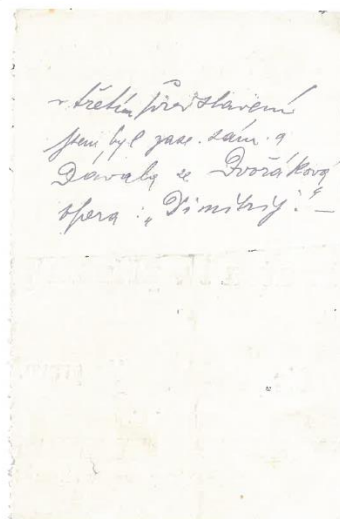 v třetím představení
jsem byl zase sám a
Dávala se Dvořákova
opera: „Dimitrij“. –